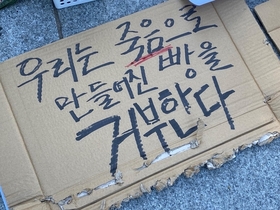 우리는 죽음으로
만들어진 빵을
거부한다